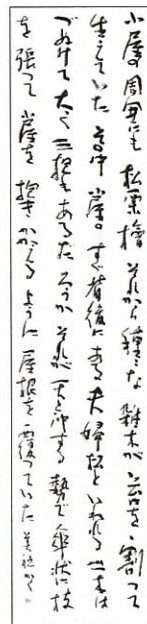 小屋の周囲にも松栗檜それから種々な雑木が岩を割って
生えていた 高い小屋のすぐ背後にある夫婦松といわれる一本は
づぬけて大きく三抱もあるだろうか それが天に沖する勢で傘状に枝
を張って小屋を抱きかかえるように屋根を覆っていた